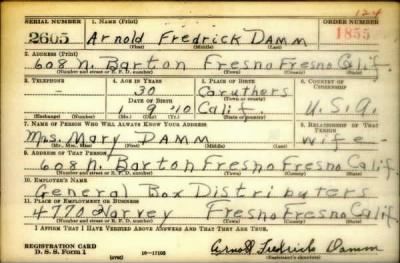 124
SERIAL NUMBER 1. NAME (Print) ORDER NUMBER
2605 Arnold Fredrick Damm 1855
(First) (Middle) (Last)
2. ADDRESS (Print)
608 N. Barton Fresno Fresno Calif.
(Number and street or R. F. D. number) (Town) (County) (State)
3. TELEPHONE 4. AGE IN YEARS 5. PLACE OF BIRTH 6. COUNTRY OF CITIZENSHIP
30 Caruthers
(Town or county)
DATE OF BIRTH
1 9 '10 Calif. U.S.A.
(Exchange) (Number) (Mo.) (Day) (Yr.) (State or country)
7. NAME OF PERSON WHO WILL ALWAYS KNOW YOUR ADDRESS 8. RELATIONSHIP OF THAT PERSON
Mrs. Mary DAMM wife
(Mr., Mrs., Miss) (First) (Middle) (Last)
9. ADDRESS OF THAT PERSON
608 N. Barton Fresno Fresno Calif.
(Number and street or R. F. D. number) (Town) (County) (State)
10. EMPLOYER'S NAME
General Box Distributers
11. PLACE OF EMPLOYMENT OR BUSINESS
4770 Harvey Fresno Fresno Calif.
(Number and street or R. F. D. number) (Town) (County) (State)
I AFFIRM THAT I HAVE VERIFIED ABOVE ANSWERS AND THAT THEY ARE TRUE.
REGISTRATION CARD
D. S. S. Form 1 (over) 16—17105 Arnold Fredrick Damm
(Registrant's signature)